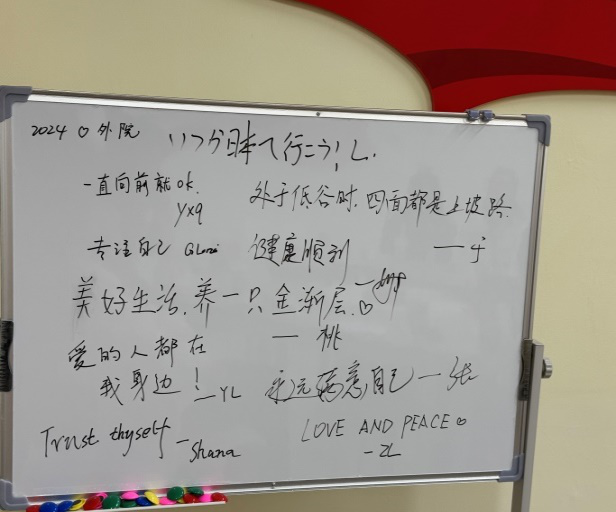 2024 ♡ 外院
いつか日本へ行こう! L.
一直向前就ok.
yxq
处于低谷时.四面都是上坡路.
专注自己
健康顺利
美好生活.养一只金渐层.♡
一 桃
爱的人都在
我身边! — YL
永远满意自己 一张
Trust thyself — Shana
LOVE AND PEACE ♡
- ZL